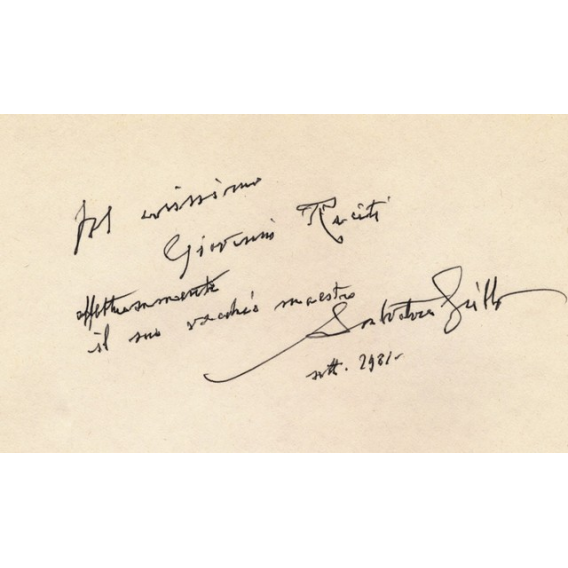 Al carissimo
Giovanni Raciti
affettuosamente
il suo vecchio maestro
Salvatore Grillo
sett. 1981-